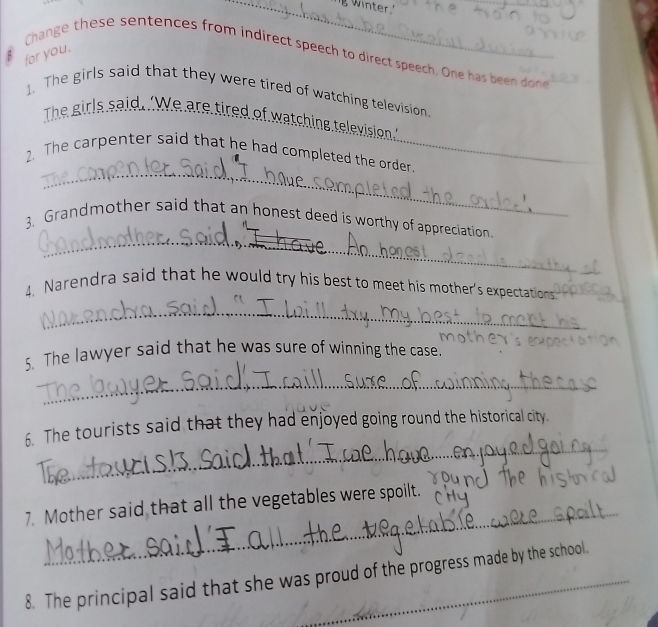 winter.'
Change these sentences from indirect speech to direct speech. One has been done
for you.
1. The girls said that they were tired of watching television.
The girls said, 'We are tired of watching television.'
2. The carpenter said that he had completed the order.
The carpenter said, "I have completed the order.'
3. Grandmother said that an honest deed is worthy of appreciation.
Grandmother said, "I have An honest deed is worthy of
4. Narendra said that he would try his best to meet his mother's expectations.
Narendra said, " I will try my best to meet his
mother's expectation
5. The lawyer said that he was sure of winning the case.
The lawyer said, 'I will sure of winning the case
have
6. The tourists said that they had enjoyed going round the historical city.
The tourists said that ' I we have enjoyed going
round the historical
city
7. Mother said that all the vegetables were spoilt.
Mother said 'I all the vegetable were spoilt
8. The principal said that she was proud of the progress made by the school.